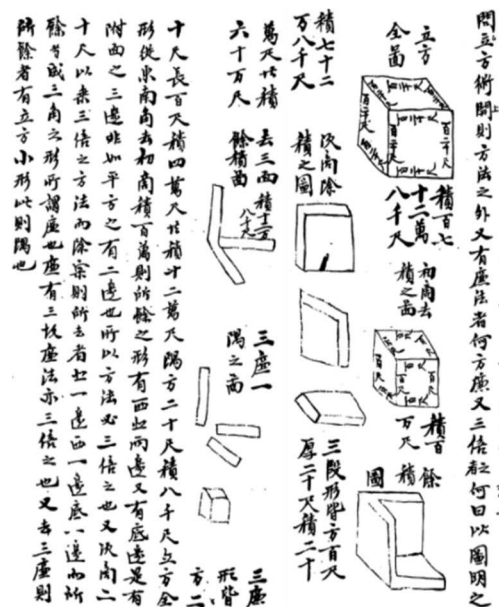 問立方術開則方法之外又有廉法者何方廉又三倍之何曰以圖明之
立方
全啚
百二十尺
積百七
十二萬
八千尺
初商去
積之啚
積百
万尺
餘
積
圖
積七十二
万八千尺
次商除
積之圖
三段形皆方百尺
厚二十尺積二十
萬尺共積
六十万尺
去三面積十二万
八千尺
餘積啚
三廉一
隅之啚
三廉
形皆
方二
十尺長百尺積四萬尺共積十二萬尺隅方二十尺積八千尺立方全
形從東南角去初商積百萬則所餘之形有西北兩邊又有底邊是有
附面之三邊非如平方之有二邊也所以方法必三倍之也又次商二
十尺以乘三倍之方法而除案則所去者北一邊西一邊底一邊而所
餘皆成三角之形所謂廉也廉有三故廉法亦三倍之也又去三廉則
所餘者有立方小形此則隅也